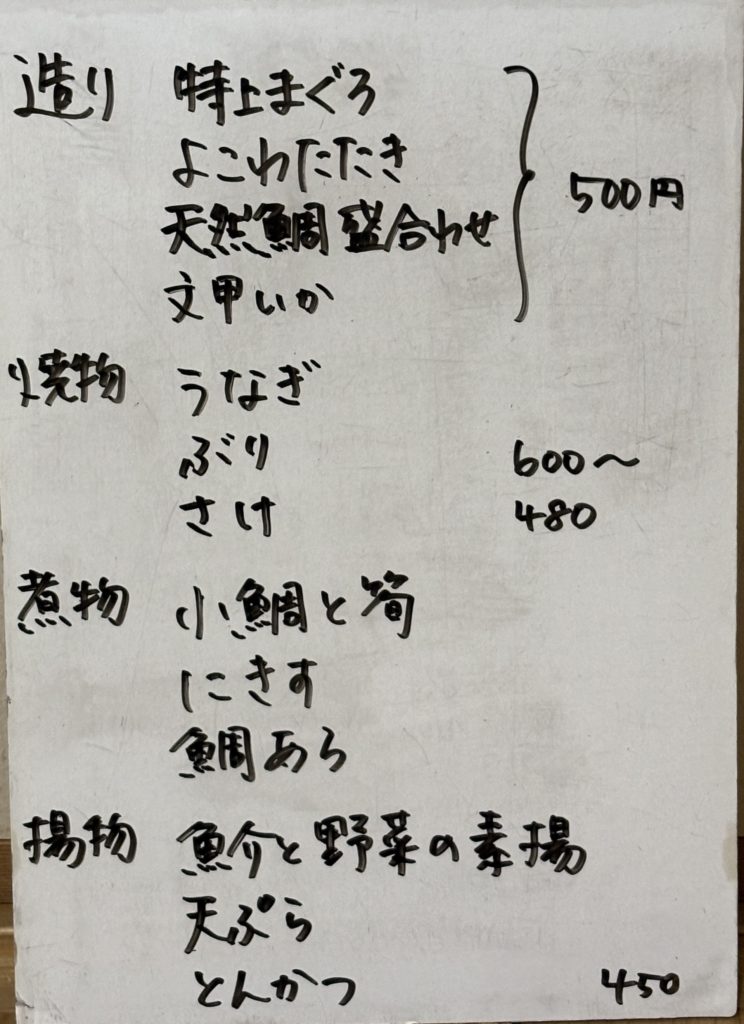 造り 特上まぐろ
よこわたたき
天然鯛盛合わせ
文甲いか
500円
焼物 うなぎ
ぶり 600〜
さけ 480
煮物 小鯛と筍
にきす
鯛あら
揚物 魚介と野菜の素揚
天ぷら
とんかつ 450